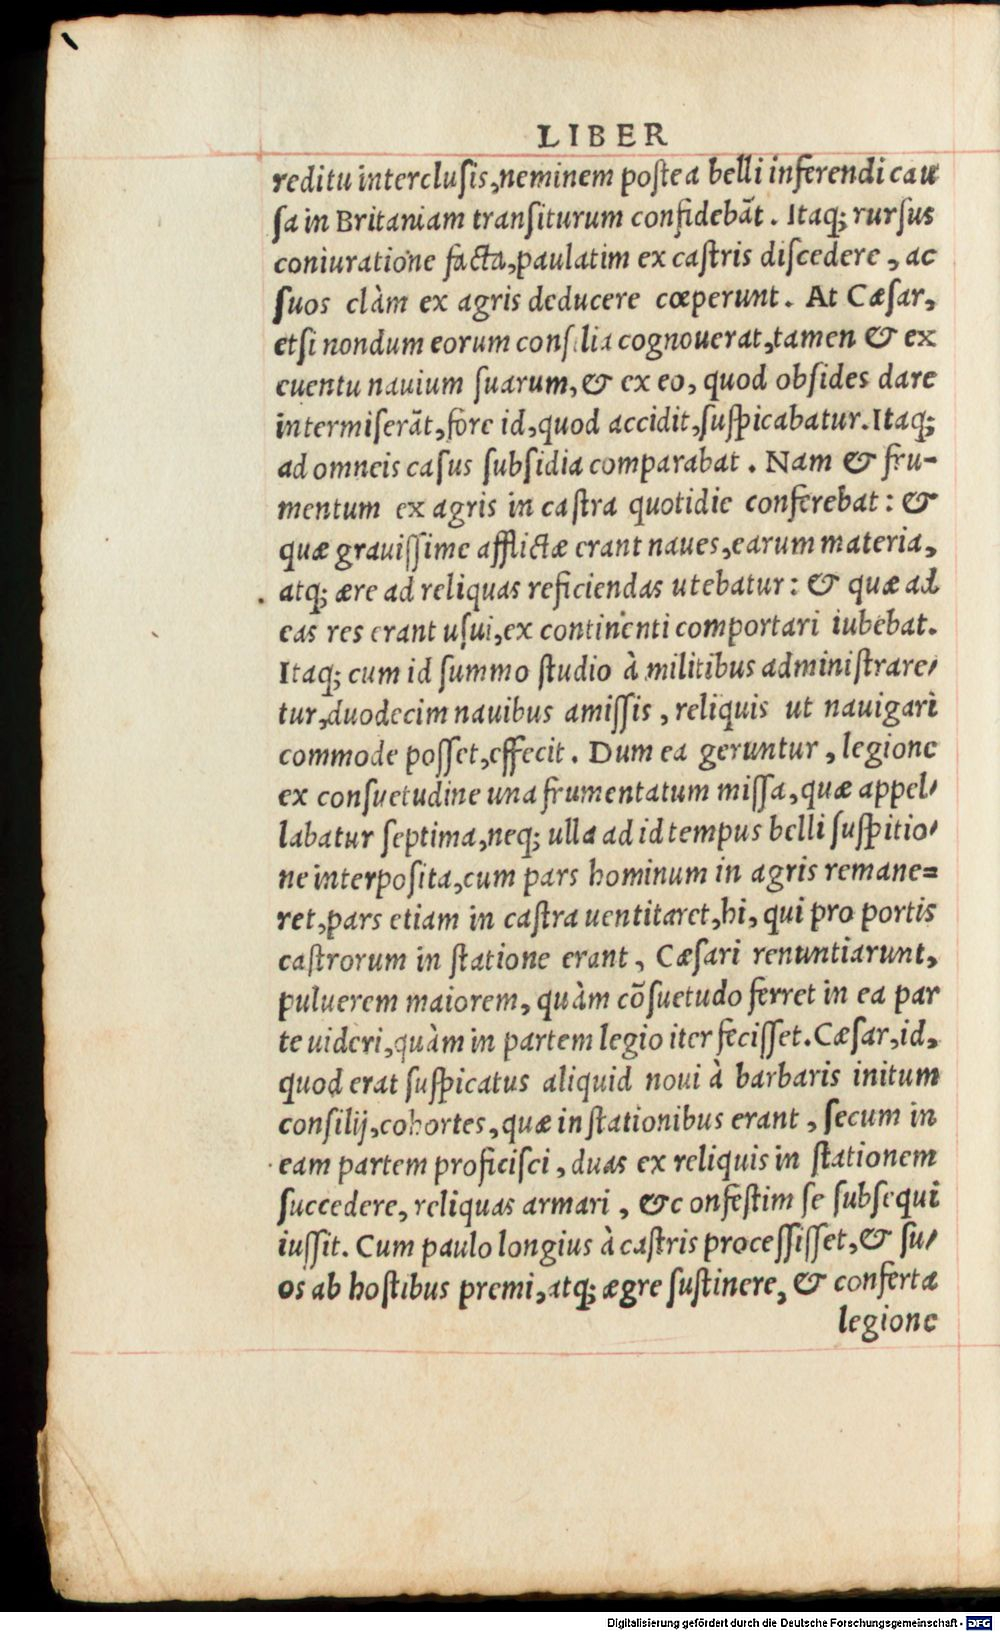 LIBER
reditu interclusis, neminem postea belli inferendi cau
sa in Britaniam transiturum confidebāt. Itaq; rursus
coniuratione facta, paulatim ex castris discedere, ac
suos clàm ex agris deducere cœperunt. At Cæsar,
etsi nondum eorum consilia cognouerat, tamen & ex
euentu nauium suarum, & ex eo, quod obsides dare
intermiserāt, fore id, quod accidit, suspicabatur. Itaq;
ad omneis casus subsidia comparabat. Nam & fru-
mentum ex agris in castra quotidie conferebat: &
quæ grauissime afflictæ erant naues, earum materia,
atq; ære ad reliquas reficiendas utebatur: & quæ ad
eas res erant usui, ex continenti comportari iubebat.
Itaq; cum id summo studio à militibus administrare/
tur, duodecim nauibus amissis, reliquis ut nauigari
commode posset, effecit. Dum ea geruntur, legione
ex consuetudine una frumentatum missa, quæ appel/
labatur septima, neq; ulla ad id tempus belli suspitio/
ne interposita, cum pars hominum in agris remane=
ret, pars etiam in castra uentitaret, hi, qui pro portis
castrorum in statione erant, Cæsari renuntiarunt,
puluerem maiorem, quàm cōsuetudo ferret in ea par
te uideri, quàm in partem legio iter fecisset. Cæsar, id,
quod erat suspicatus aliquid noui à barbaris initum
consilij, cohortes, quæ in stationibus erant, secum in
eam partem proficisci, duas ex reliquis in stationem
succedere, reliquas armari, &c onfestim se subsequi
iussit. Cum paulo longius à castris processisset, & su/
os ab hostibus premi, atq; ægre sustinere, & conferta
legione
Digitalisierung gefördert durch die Deutsche Forschungsgemeinschaft - DFG